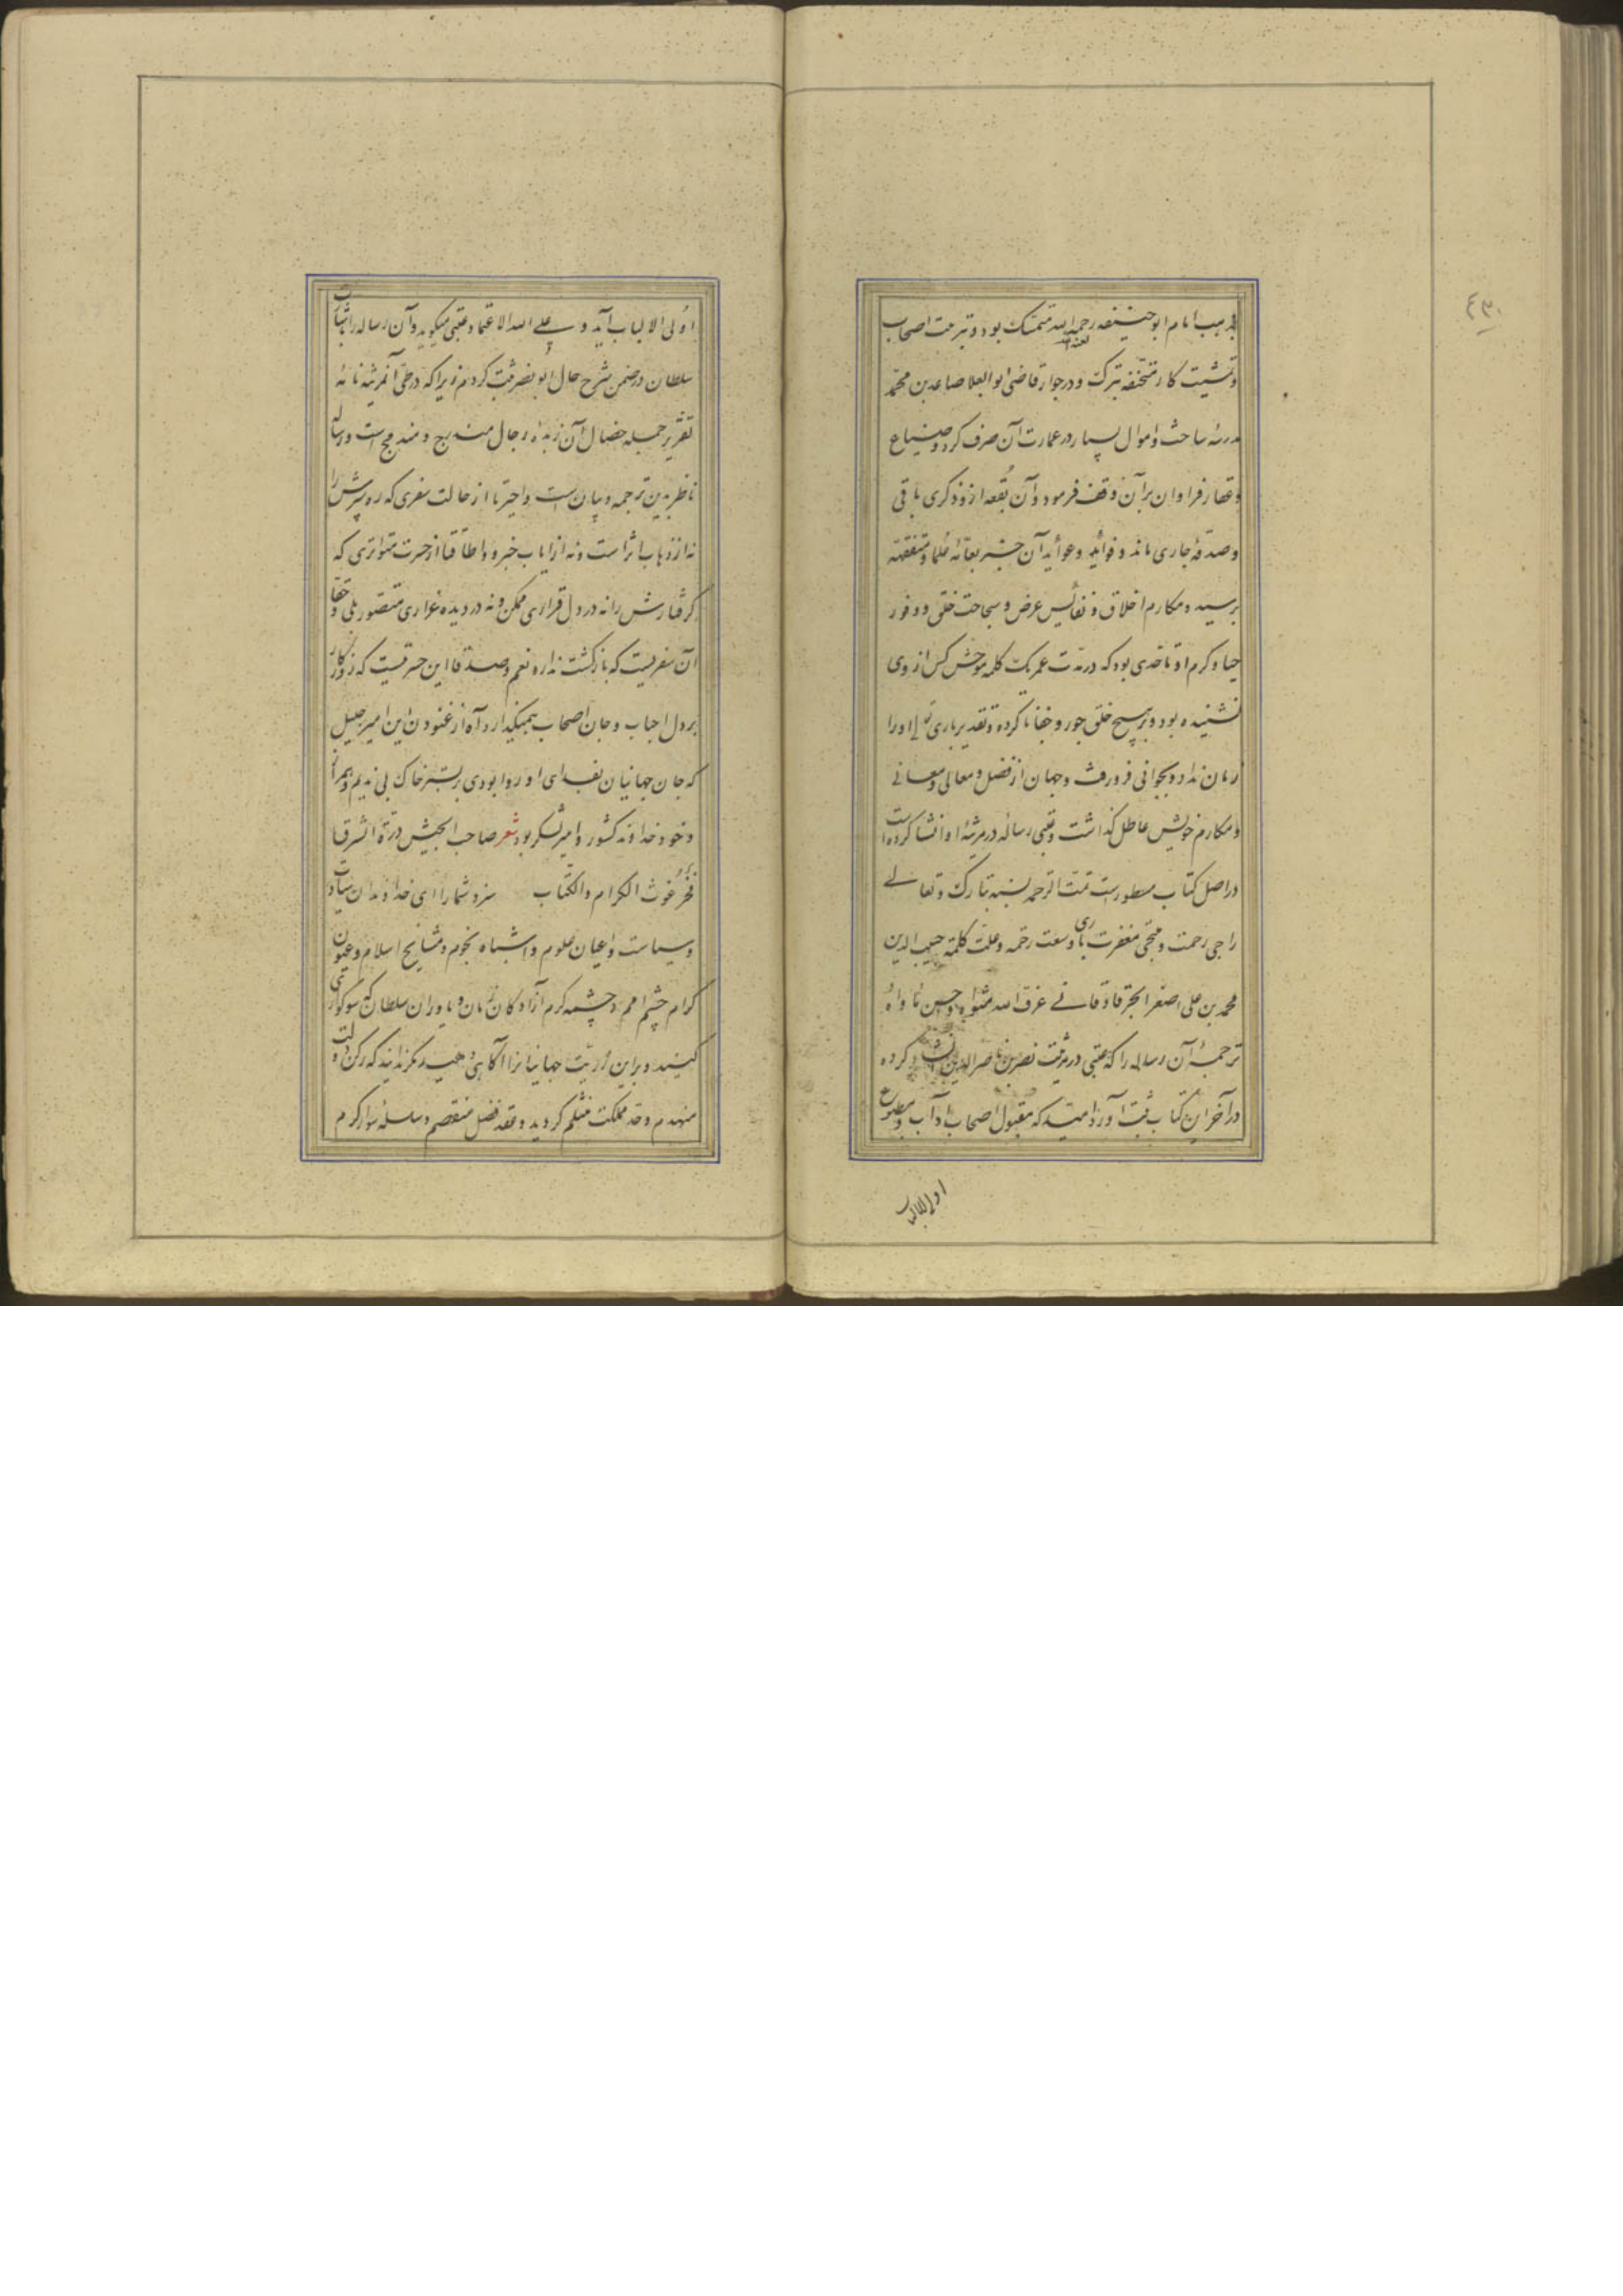 ٤٣٠
بمذهب امام ابوحنیفه رحمه الله متمسک بود و تبربیت اصحاب
لعنه الله
و تمشیت کار متحنفه تبرک و در جوار قاضی ابوالعلا صاعد بن محمد
مدرسهٔ ساخت و اموال بسیار در عمارت آن صرف کرد و ضیاع
و عقار فراوان بر آن وقف فرمود و آن بقعه ازو ذکری باقی
و صدقهٔ جاری ماند و فواید و عواید آن خیر بعامهٔ علما و متفقهه
برسید و مکارم اخلاق و نفایس عرض و سجاحت خلق و وفور
حیا و کرم او تا حدی بود که در مدت عمر یک کلمه موحش کس از وی
نشنیده بود و بر هیچ خلق جور و جفا ناکرده و تقدیر باری تعالی او را
زمان نداد و بجوانی فرو رفت و جهان از فضل و معالی و معانی
و مکارم خویش عاطل گذاشت و عتبی رسالهٔ در مرثیهٔ او انشا کرده است
در اصل کتاب مسطورست تمت الترجمه بمنه تبارک و تعالی
راجی رحمت و ملتجی مغفرت باری وسعت رحمه و علت کلمته حبیب الدین
محمد بن علی اصغر الجرفادقانی عرف الله مثواه و احسن ماواه
ترجمهٔ آن رساله را که عتبی در مرثیت نصر بن ناصر الدین انشاد کرده
در آخر این کتاب ثبت آورد امید که مقبول اصحاب آداب و مطبوع
اولی الالباب
اولی الالباب آید و علی الله الاعتماد عتبی میگوید و آن رساله را بثبات
سلطان در ضمن شرح حال ابونصر ثبت کردم زیرا که در طی آن مرثیه نامهٔ
تقریر جمله خصال آن زبدهٔ رجال مندرج و مندمج است و رساله
ناظر بدین ترجمه و بیان است واحیرتا از حالت سفری که ره سپرش را
نه از ذهاب اثر است و نه از ایاب خبر و واطاقتا از حسرت متواتری که
گرفتارش را نه در دل قراری ممکن و نه در دیده غراری متصور بلی و حقا
آن سفریست که بازگشت ندارد نعم و صدقا این حسرتیست که روزگار
بر دل احباب و جان اصحاب همیگمارد آه از غنودن این امیر جلیل
که جان جهانیان بفدای او روا بودی بر بستر خاک بی ندیم و همراز
و خود خداوند کشور و امیر لشکر بود شعر صاحب الجیش درة الشرق
فخر غوث الکرام والکتاب سزد شما را ای خداوندان سیادت
و سیاست و اعیان علوم و اشباه نجوم و مشایخ اسلام و عیون
کرام چشم امم و چشمه کرم آزادگان زمان و یاوران سلطان که سوگواری
کنید و برین رزیت جهانیانرا آگاهی دهید و بگزندانید که رکن دولت
منهدم و حد مملکت منثلم گردید و عقد فضل منفصم و سلسله سوار کرم